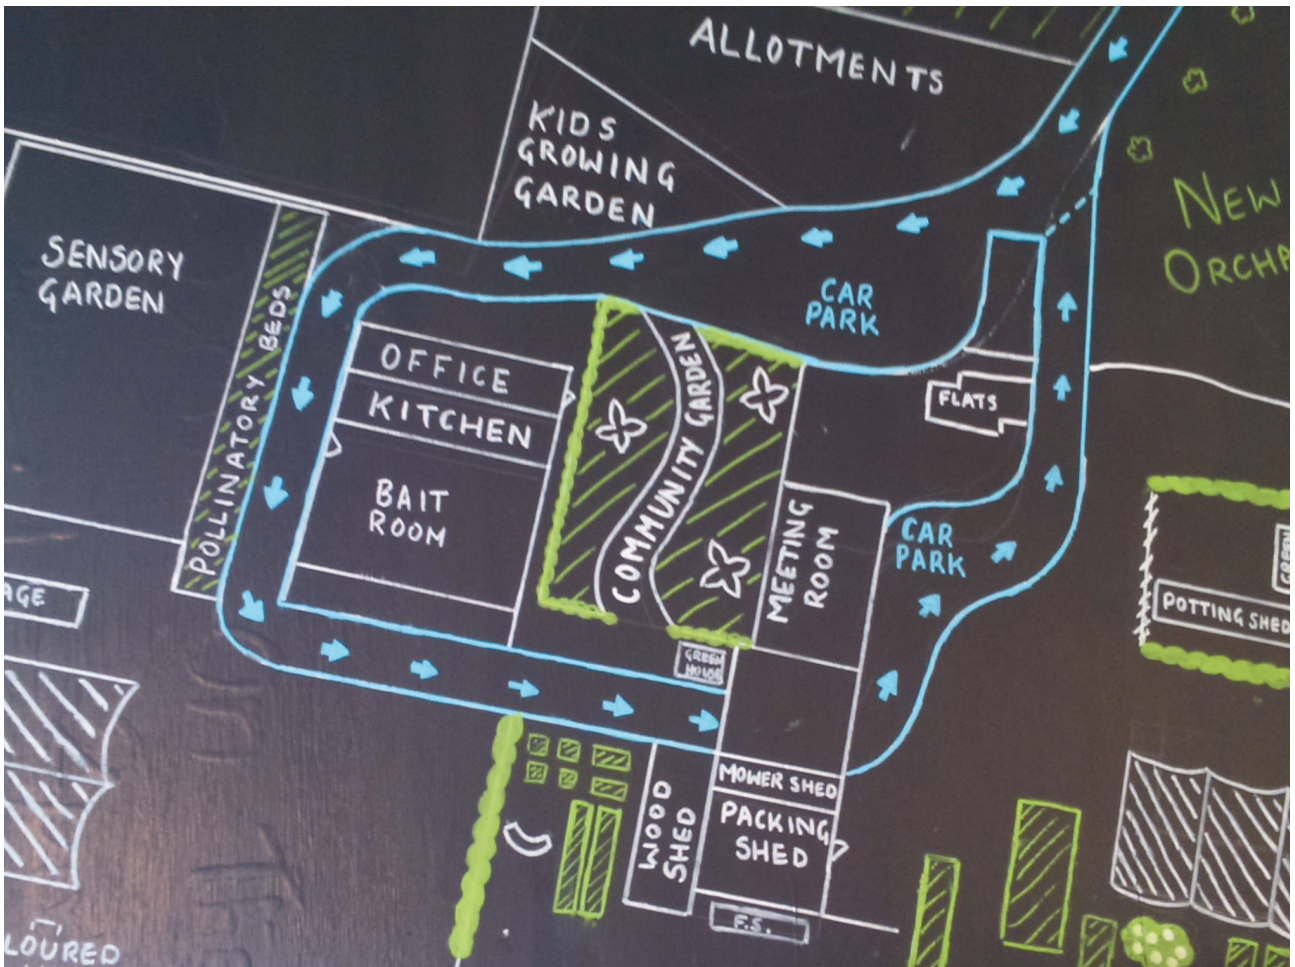 ALLOTMENTS
KIDS
GROWING
GARDEN
NEW
SENSORY
GARDEN
POLLINATORY BEDS
CAR
PARK
OFFICE
KITCHEN
BAIT
ROOM
COMMUNITY GARDEN
FLATS
MEETING
ROOM
CAR
PARK
GREEN
POTTING SHED
GREEN
HOUSE
MOWER SHED
PACKING
SHED
WOOD
SHED
F.S.